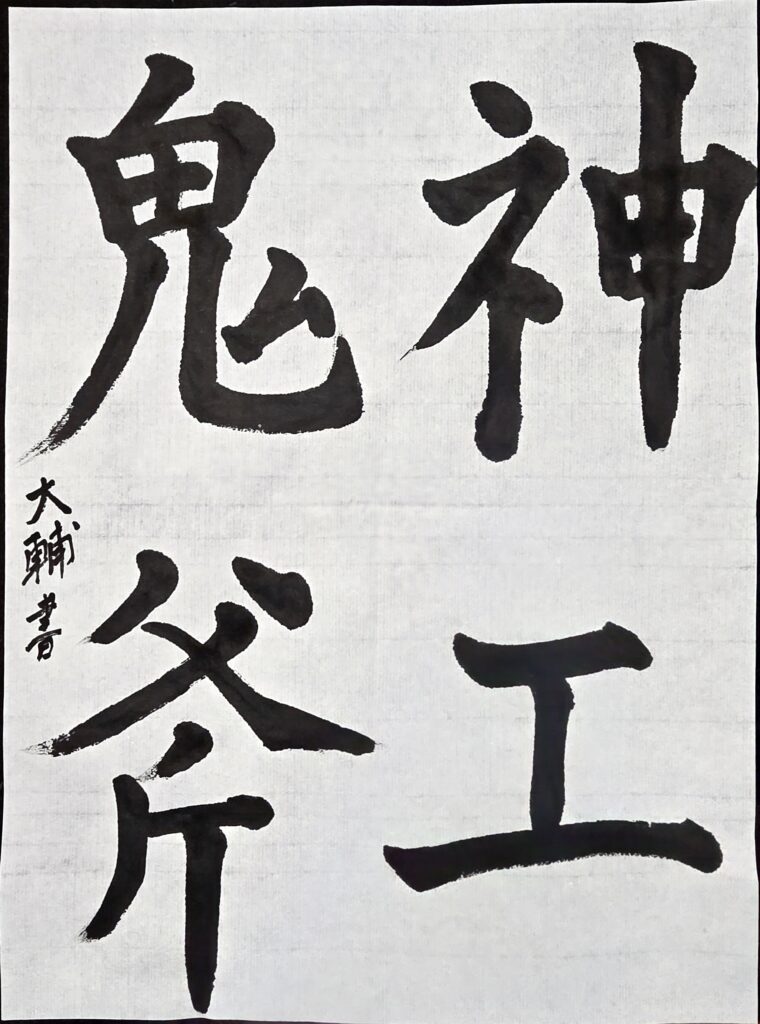 神工
鬼斧
大輔書